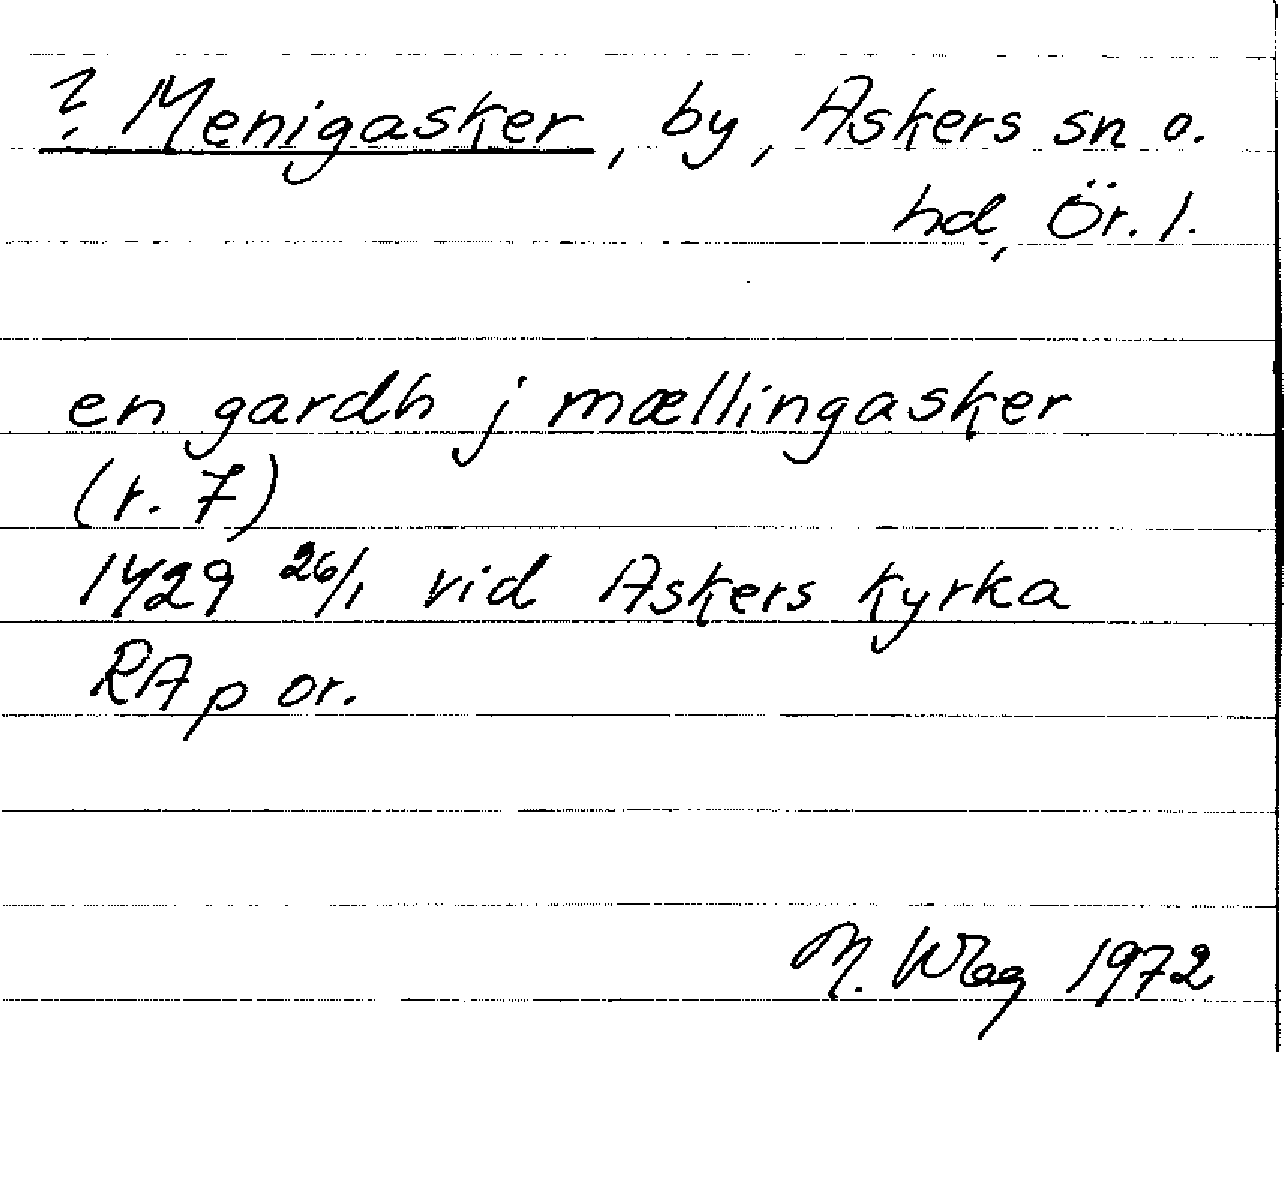 ? Menigasker, by, Askers sn o.
hd, Ör. l.
en gardh j mællingasker
(r. 7)
1429 26/1 vid Askers kyrka
RAp or.
M. Wag 1972